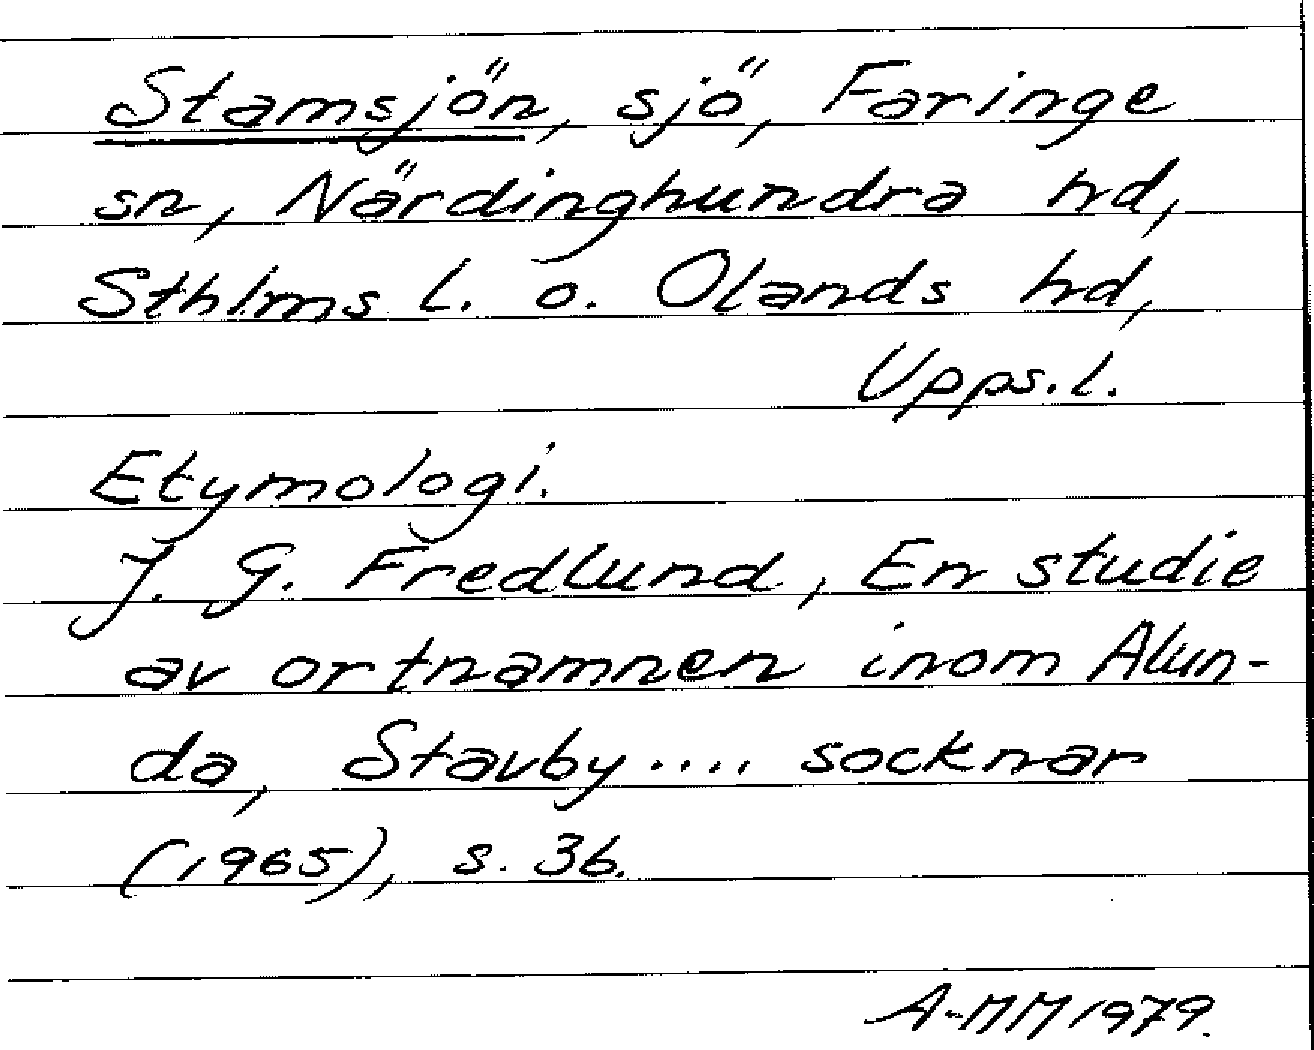 Stamsjön, sjö, Faringe
sn, Närdinghundra hd,
Sthlms l. o. Olands hd,
Upps. l.
Etymologi.
J. G. Fredlund, En studie
av ortnamnen inom Alun-
da, Stavby .... socknar
(1965), s. 36.
A-MM 1979.